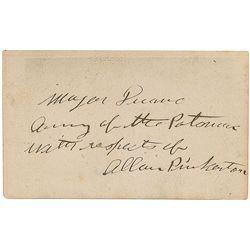 Major Duane
Army of the Potomac
with respects of
Allan Pinkerton